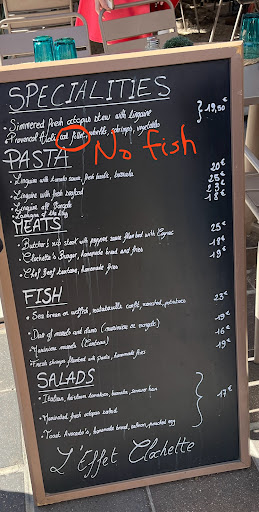 SPECIALITIES
Simmered fresh octopus stew with linguine
Provencal Aïoli cod fillet, vegetables
19,50€
No fish
PASTA
Linguine with tomato sauce, fresh basil, burrata 20€
Linguine with fresh seafood 25€
Linguine
Lasagna of the day
MEATS
Butcher's rib steak with pepper sauce flambéed with Cognac 25€
Clochette's Burger, homemade bread and fries 18€
Chef Beef tartare, homemade fries 19€
FISH
Sea bream or wolfish, ratatouille confit, roasted potatoes 23€
Duo of mussels and clams (marinière or 19€
Marinière mussels 16€
Fresh shrimps flambéed with pastis, homemade fries 19€
SALADS
Italian, heirloom tomatoes, burrata, serrano ham
Marinated fresh octopus salad
17€
Toast Avocado's, homemade bread, salmon, poached egg
L'Effet Clochette